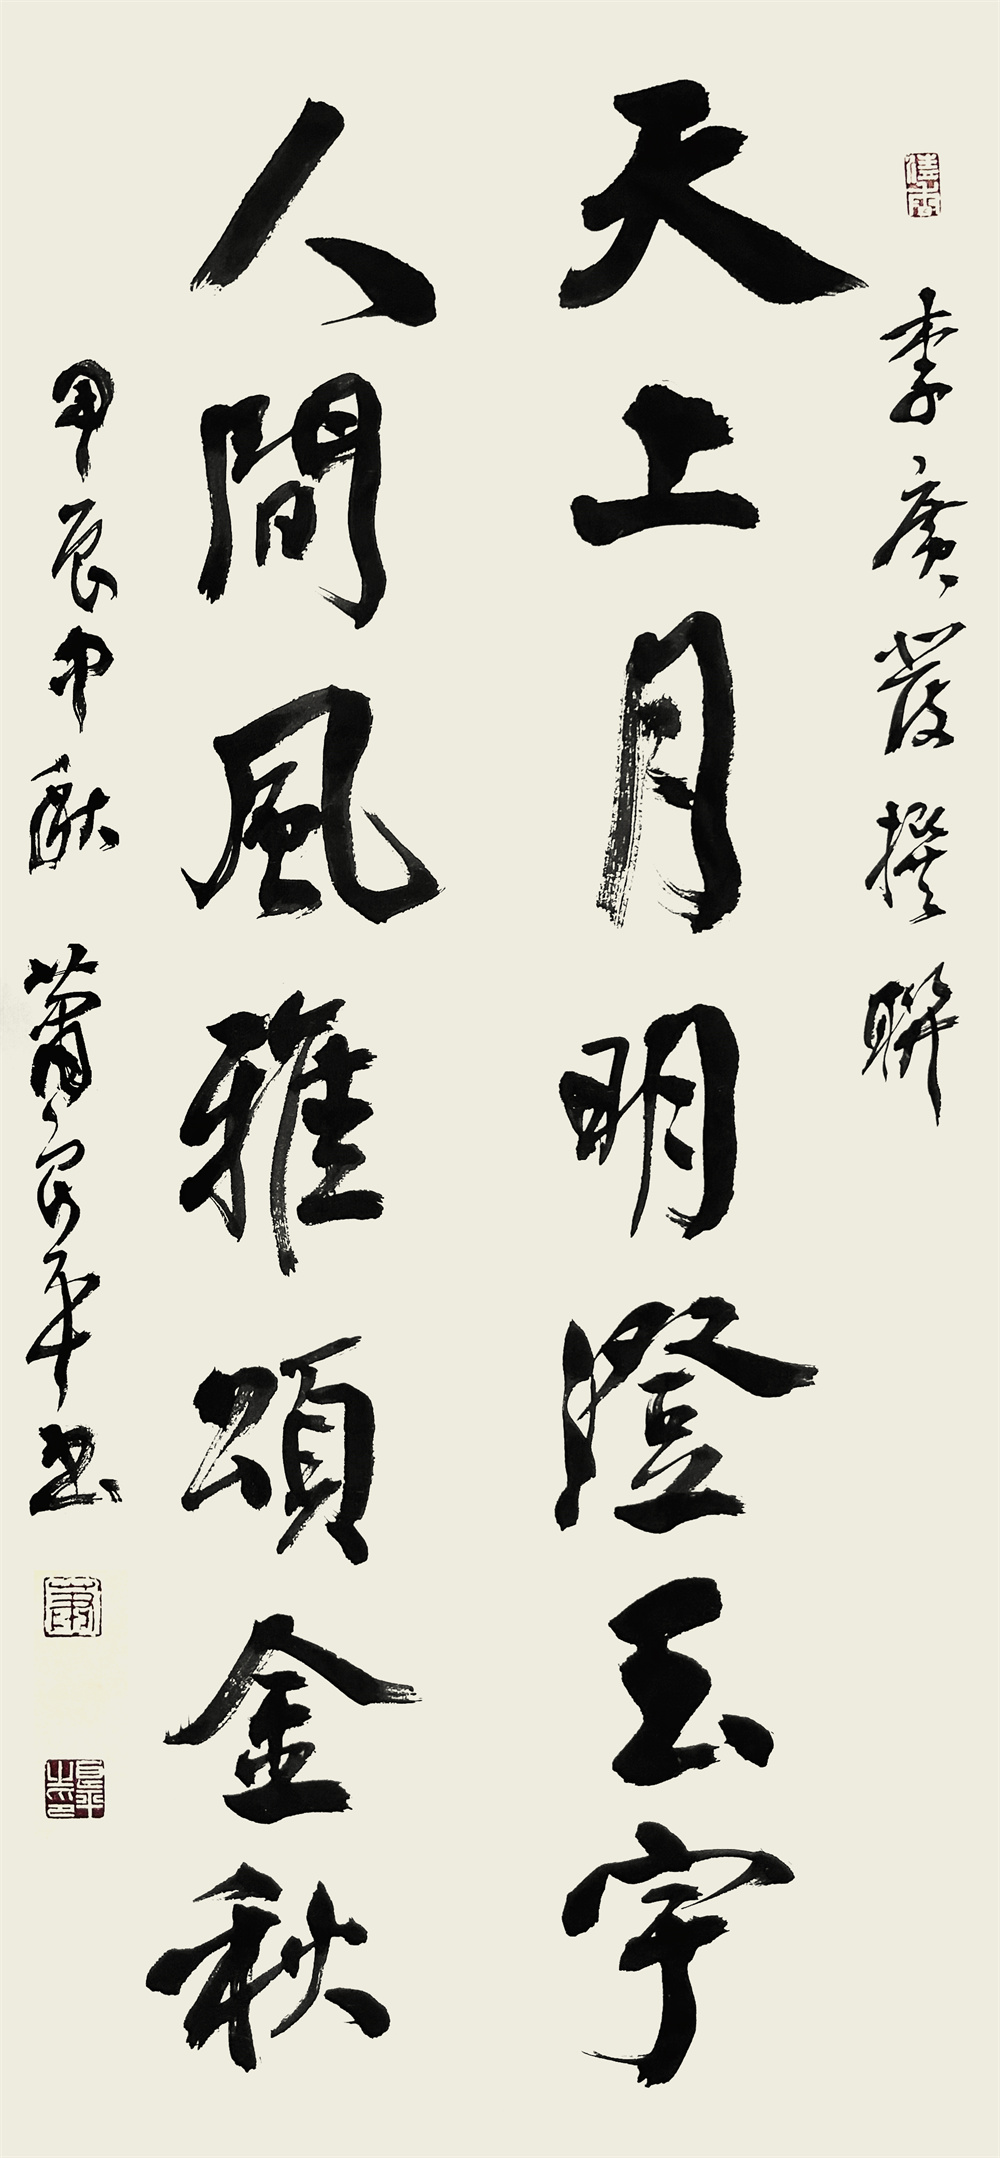 李廣發撰聯
天上月明澄玉宇
人間風雅頌金秋
甲辰中秋 蕭民平書
蕭